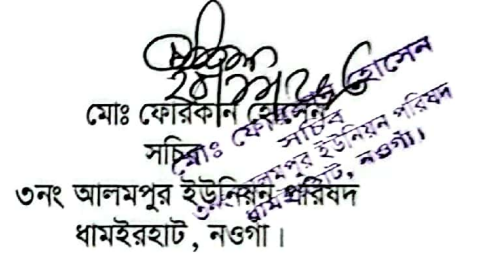 মোঃ ফোরকান হোসেন
সচিব
৩নং আলমপুর ইউনিয়ন পরিষদ
ধামইরহাট , নওগাঁ ।
মোঃ হোসেন
সচিব
আলমপুর ইউনিয়ন পরিষদ
ধামইরহাট, নওগাঁ।